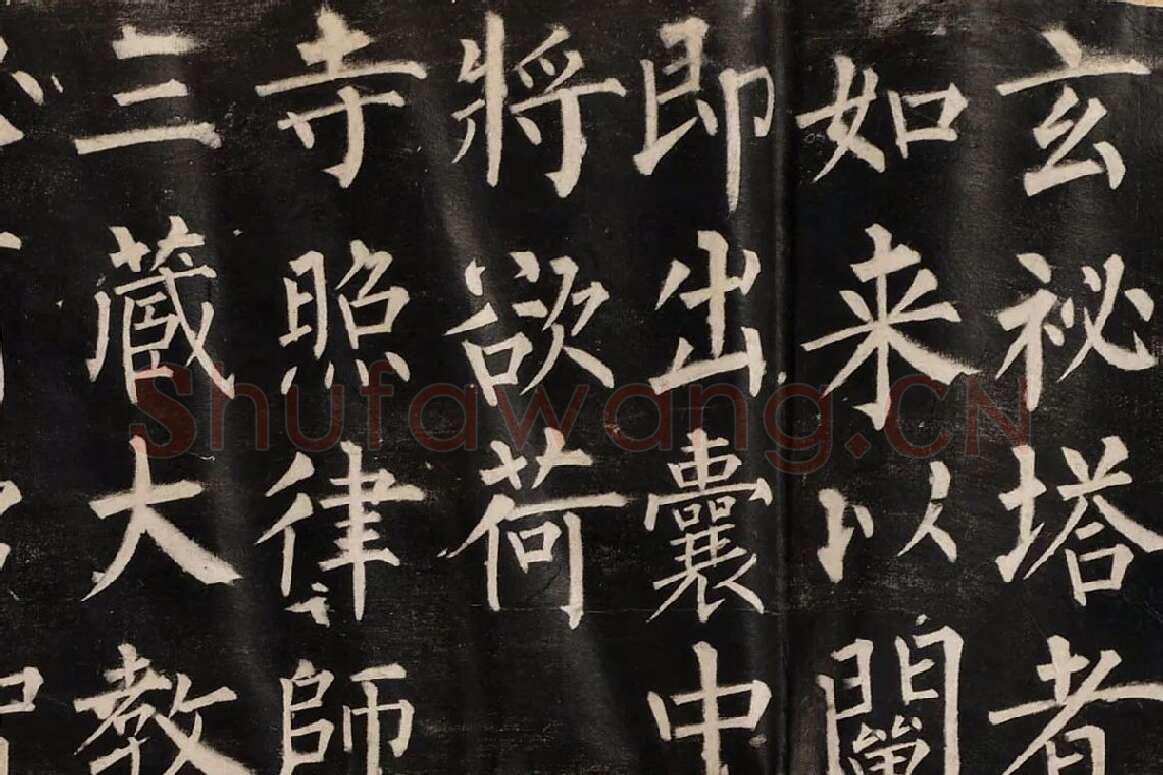 玄祕塔者
如来以闡
即出囊中
將欲荷
寺照律師
三藏大教
Shufawang.CN